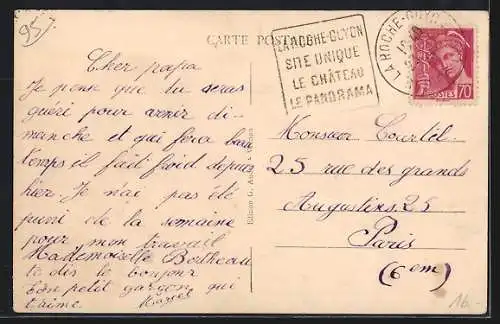 95
CARTE POSTALE
LA ROCHE-GUYON
SITE UNIQUE
LE CHÂTEAU
LE PANORAMA
LA ROCHE-GUYON
POSTES 70
Cher papa
Je pense que tu seras
guéri pour venir di-
manche et qu'il fera beau
temps il fait froid depuis
hier. Je n'ai pas été
puni de la semaine
pour mon travail
Mademoiselle Bertheau
te dis le bonjour
Ton petit garçon qui
t'aime.
Edition G.
Monsieur Courtil
25 rue des grands
Augustins. 25
Paris
(6em)
16.-